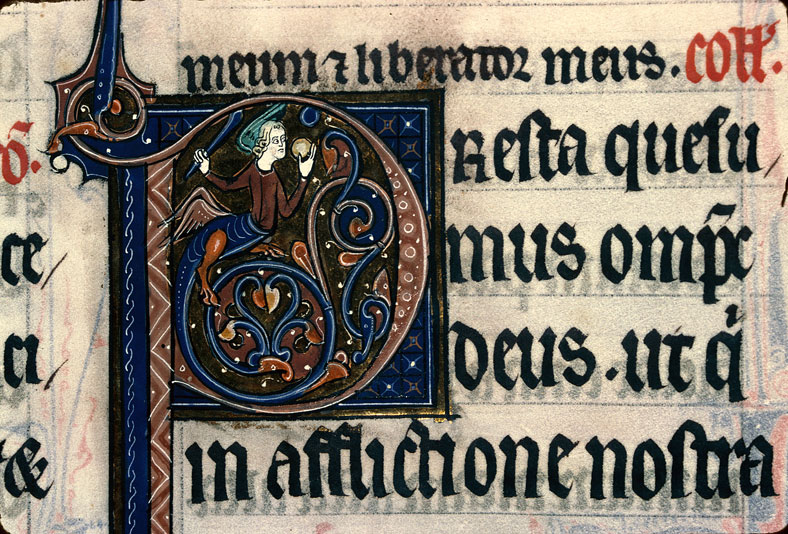 meum ⁊ liberator meus. coll̃.
PResta quesu/
mus omp̃c
deus. ut q̇
in afflictione nostra
ce/
ci/
&